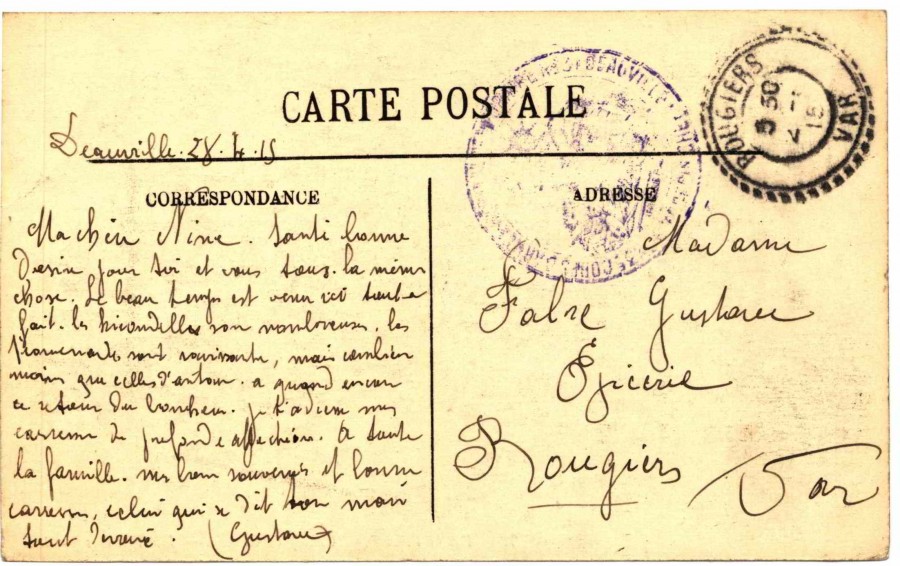 CARTE POSTALE
Deauville. 28.4.15
CORRESPONDANCE
Ma chère Nine. Santé bonne
désire pour toi et vous tous. la même
chose. Le beau temps est venu ici tout à
fait. les hirondelles son nombreuses. les
promenades sont ravissante, mais combien
moins que celles d'antan. a quand encore
ce retour du bonheur. je t'adresse mes
caresses de profonde affection. A toute
la famille. mes bons souvenirs et bonne
caresses, celui qui se dit ton mari
tout dévoué. (Gustave)
ADRESSE
Madame
Fabre Gustave
Épicerie
Rougiers
Var
ROUGIERS
5 30
15
VAR
DEAUVILLE